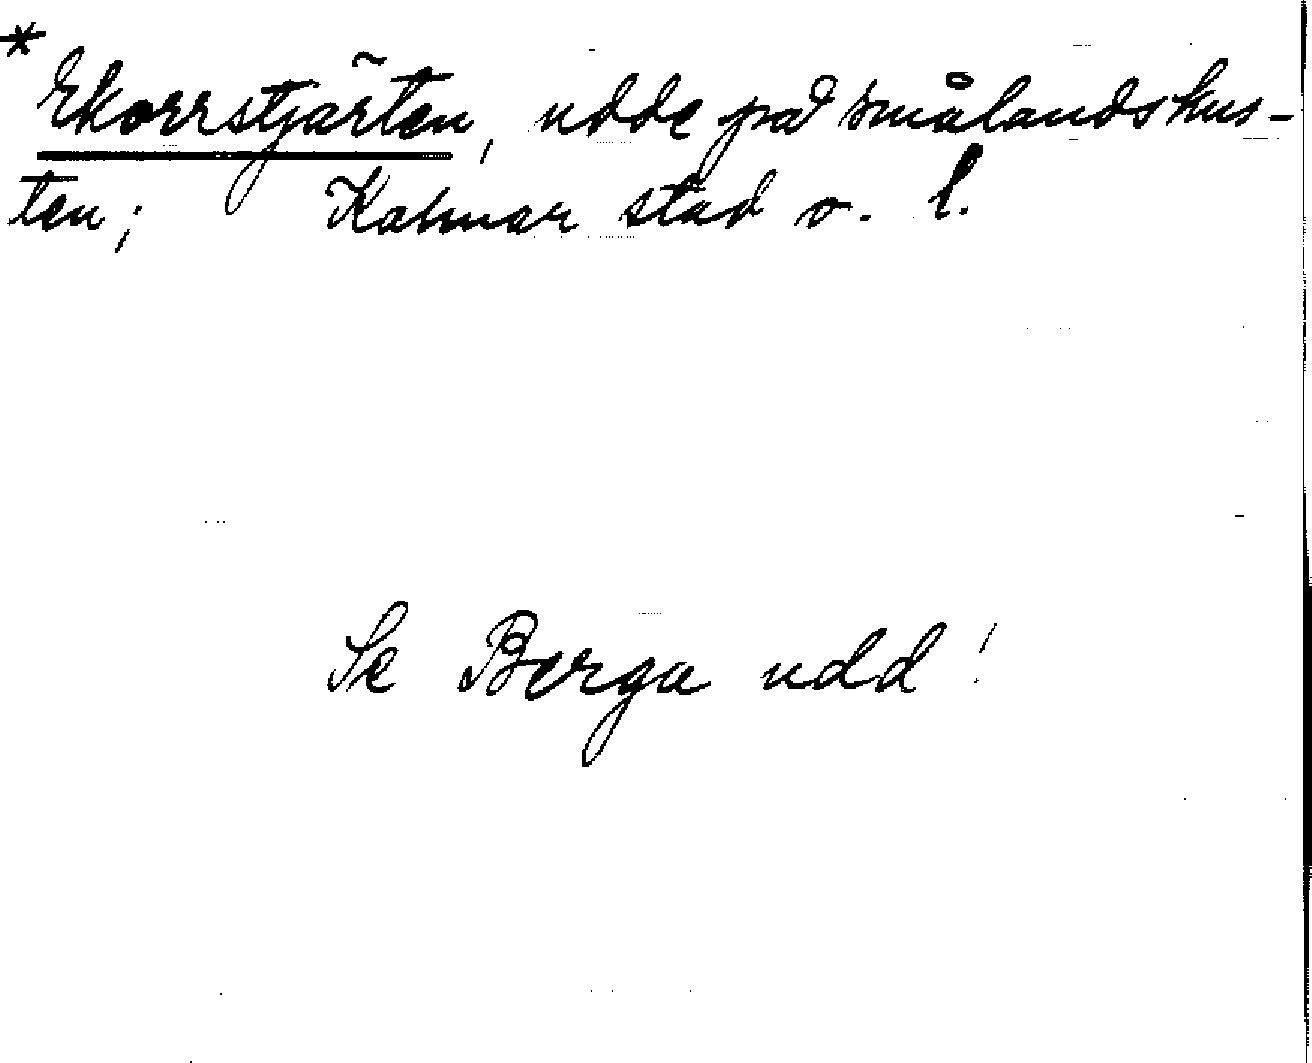 * Ekorrstjärten, udde på smålandskus-
ten; Kalmar stad o. l.
Se Berga udd!